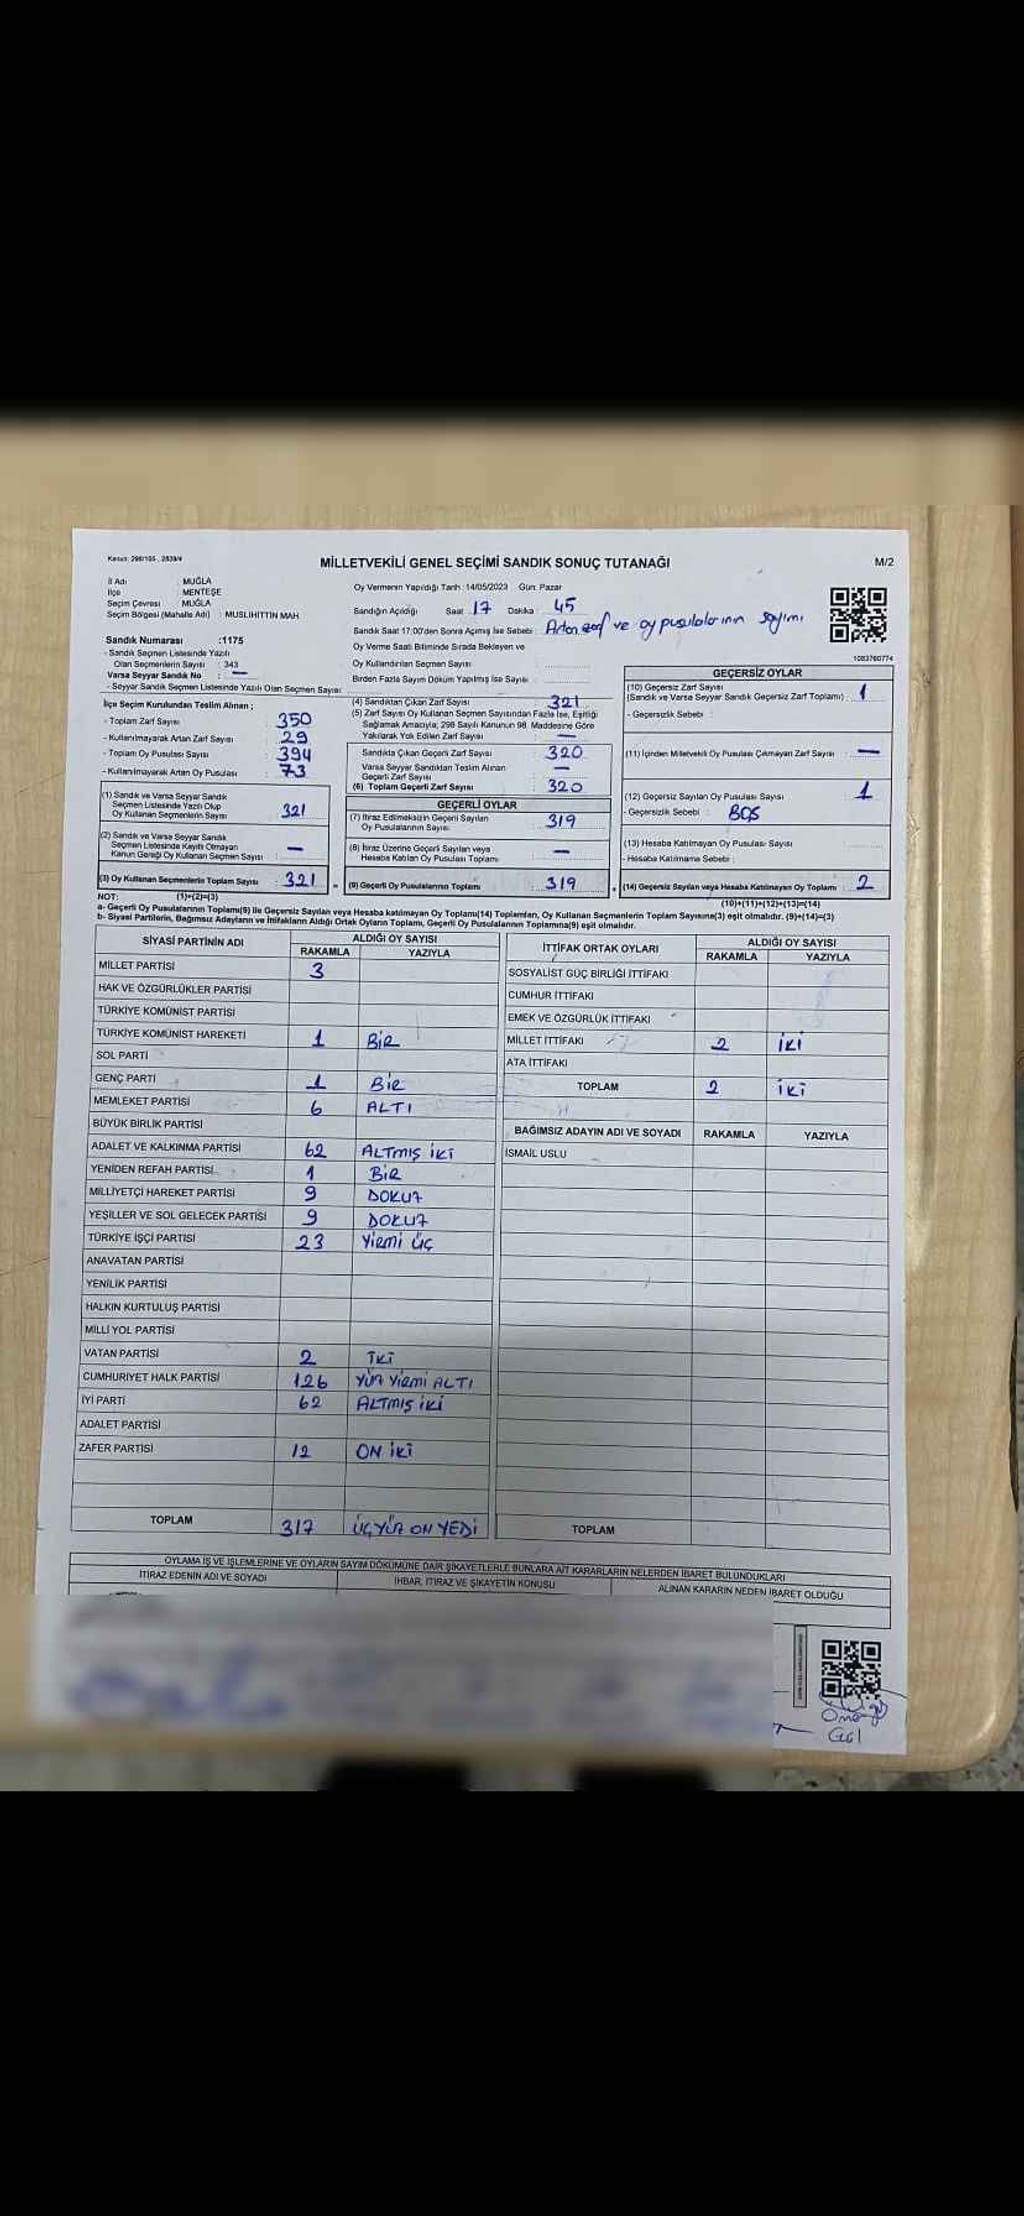 Kanun: 298/105 , 2839/4
MİLLETVEKİLİ GENEL SEÇİMİ SANDIK SONUÇ TUTANAĞI
M/2
İl Adı : MUĞLA
İlçe : MENTEŞE
Seçim Çevresi : MUĞLA
Seçim Bölgesi (Mahalle Adı) : MUSLIHITTIN MAH
Sandık Numarası :1175
- Sandık Seçmen Listesinde Yazılı
Olan Seçmenlerin Sayısı : 343
Varsa Seyyar Sandık No : —
- Seyyar Sandık Seçmen Listesinde Yazılı Olan Seçmen Sayısı
Oy Vermenin Yapıldığı Tarih :14/05/2023 Gün: Pazar
Sandığın Açıldığı Saat 17 Dakika 45
Sandık Saat 17:00'den Sonra Açılmış İse Sebebi : Artan zarf ve oy pusulalarının sayımı
Oy Verme Saati Bitiminde Sırada Bekleyen ve
Oy Kullandırılan Seçmen Sayısı
Birden Fazla Sayım Döküm Yapılmış İse Sayısı
1083760774
İlçe Seçim Kurulundan Teslim Alınan ;
- Toplam Zarf Sayısı : 350
- Kullanılmayarak Artan Zarf Sayısı : 29
- Toplam Oy Pusulası Sayısı : 394
- Kullanılmayarak Artan Oy Pusulası : 73
(1) Sandık ve Varsa Seyyar Sandık
Seçmen Listesinde Yazılı Olup
Oy Kullanan Seçmenlerin Sayısı : 321
(2) Sandık ve Varsa Seyyar Sandık
Seçmen Listesinde Kayıtlı Olmayan
Kanun Gereği Oy Kullanan Seçmen Sayısı : —
(3) Oy Kullanan Seçmenlerin Toplam Sayısı : 321
(1)+(2)=(3)
(4) Sandıktan Çıkan Zarf Sayısı : 321
(5) Zarf Sayısı Oy Kullanan Seçmen Sayısından Fazla İse, Eşitliği
Sağlamak Amacıyla; 298 Sayılı Kanunun 98. Maddesine Göre
Yakılarak Yok Edilen Zarf Sayısı : —
Sandıkta Çıkan Geçerli Zarf Sayısı : 320
Varsa Seyyar Sandıktan Teslim Alınan
Geçerli Zarf Sayısı : —
(6) Toplam Geçerli Zarf Sayısı : 320
GEÇERLİ OYLAR
(7) İtiraz Edilmeksizin Geçerli Sayılan
Oy Pusulalarının Sayısı : 319
(8) İtiraz Üzerine Geçerli Sayılan veya
Hesaba Katılan Oy Pusulası Toplamı : —
(9) Geçerli Oy Pusulalarının Toplamı : 319
GEÇERSİZ OYLAR
(10) Geçersiz Zarf Sayısı
(Sandık ve Varsa Seyyar Sandık Geçersiz Zarf Toplamı) : 1
- Geçersizlik Sebebi :
(11) İçinden Milletvekili Oy Pusulası Çıkmayan Zarf Sayısı : —
(12) Geçersiz Sayılan Oy Pusulası Sayısı : 1
- Geçersizlik Sebebi : BOŞ
(13) Hesaba Katılmayan Oy Pusulası Sayısı :
- Hesaba Katılmama Sebebi :
(14) Geçersiz Sayılan veya Hesaba Katılmayan Oy Toplamı : 2
(10)+(11)+(12)+(13)=(14)
NOT:
a- Geçerli Oy Pusulalarının Toplamı(9) ile Geçersiz Sayılan veya Hesaba katılmayan Oy Toplamı(14) Toplamları, Oy Kullanan Seçmenlerin Toplam Sayısına(3) eşit olmalıdır. (9)+(14)=(3)
b- Siyasi Partilerin, Bağımsız Adayların ve İttifakların Aldığı Ortak Oyların Toplamı, Geçerli Oy Pusulalarının Toplamına(9) eşit olmalıdır.
SİYASİ PARTİNİN ADI ALDIĞI OY SAYISI
RAKAMLA YAZIYLA
MİLLET PARTİSİ 3
HAK VE ÖZGÜRLÜKLER PARTİSİ
TÜRKİYE KOMÜNİST PARTİSİ
TÜRKİYE KOMÜNİST HAREKETİ 1 BİR
SOL PARTİ
GENÇ PARTİ 1 BİR
MEMLEKET PARTİSİ 6 ALTI
BÜYÜK BİRLİK PARTİSİ
ADALET VE KALKINMA PARTİSİ 62 ALTMIŞ İKİ
YENİDEN REFAH PARTİSİ 1 BİR
MİLLİYETÇİ HAREKET PARTİSİ 9 DOKUZ
YEŞİLLER VE SOL GELECEK PARTİSİ 9 DOKUZ
TÜRKİYE İŞÇİ PARTİSİ 23 YİRMİ ÜÇ
ANAVATAN PARTİSİ
YENİLİK PARTİSİ
HALKIN KURTULUŞ PARTİSİ
MİLLİ YOL PARTİSİ
VATAN PARTİSİ 2 İKİ
CUMHURİYET HALK PARTİSİ 126 YÜZ YİRMİ ALTI
İYİ PARTİ 62 ALTMIŞ İKİ
ADALET PARTİSİ
ZAFER PARTİSİ 12 ON İKİ
TOPLAM 317 ÜÇYÜZ ON YEDİ
İTTİFAK ORTAK OYLARI ALDIĞI OY SAYISI
RAKAMLA YAZIYLA
SOSYALİST GÜÇ BİRLİĞİ İTTİFAKI
CUMHUR İTTİFAKI
EMEK VE ÖZGÜRLÜK İTTİFAKI
MİLLET İTTİFAKI 2 İKİ
ATA İTTİFAKI
TOPLAM 2 İKİ
BAĞIMSIZ ADAYIN ADI VE SOYADI RAKAMLA YAZIYLA
İSMAİL USLU
TOPLAM
OYLAMA İŞ VE İŞLEMLERİNE VE OYLARIN SAYIM DÖKÜMÜNE DAİR ŞİKAYETLERLE BUNLARA AİT KARARLARIN NELERDEN İBARET BULUNDUKLARI
İTİRAZ EDENİN ADI VE SOYADI İHBAR, İTİRAZ VE ŞİKAYETİN KONUSU ALINAN KARARIN NEDEN İBARET OLDUĞU
Gül